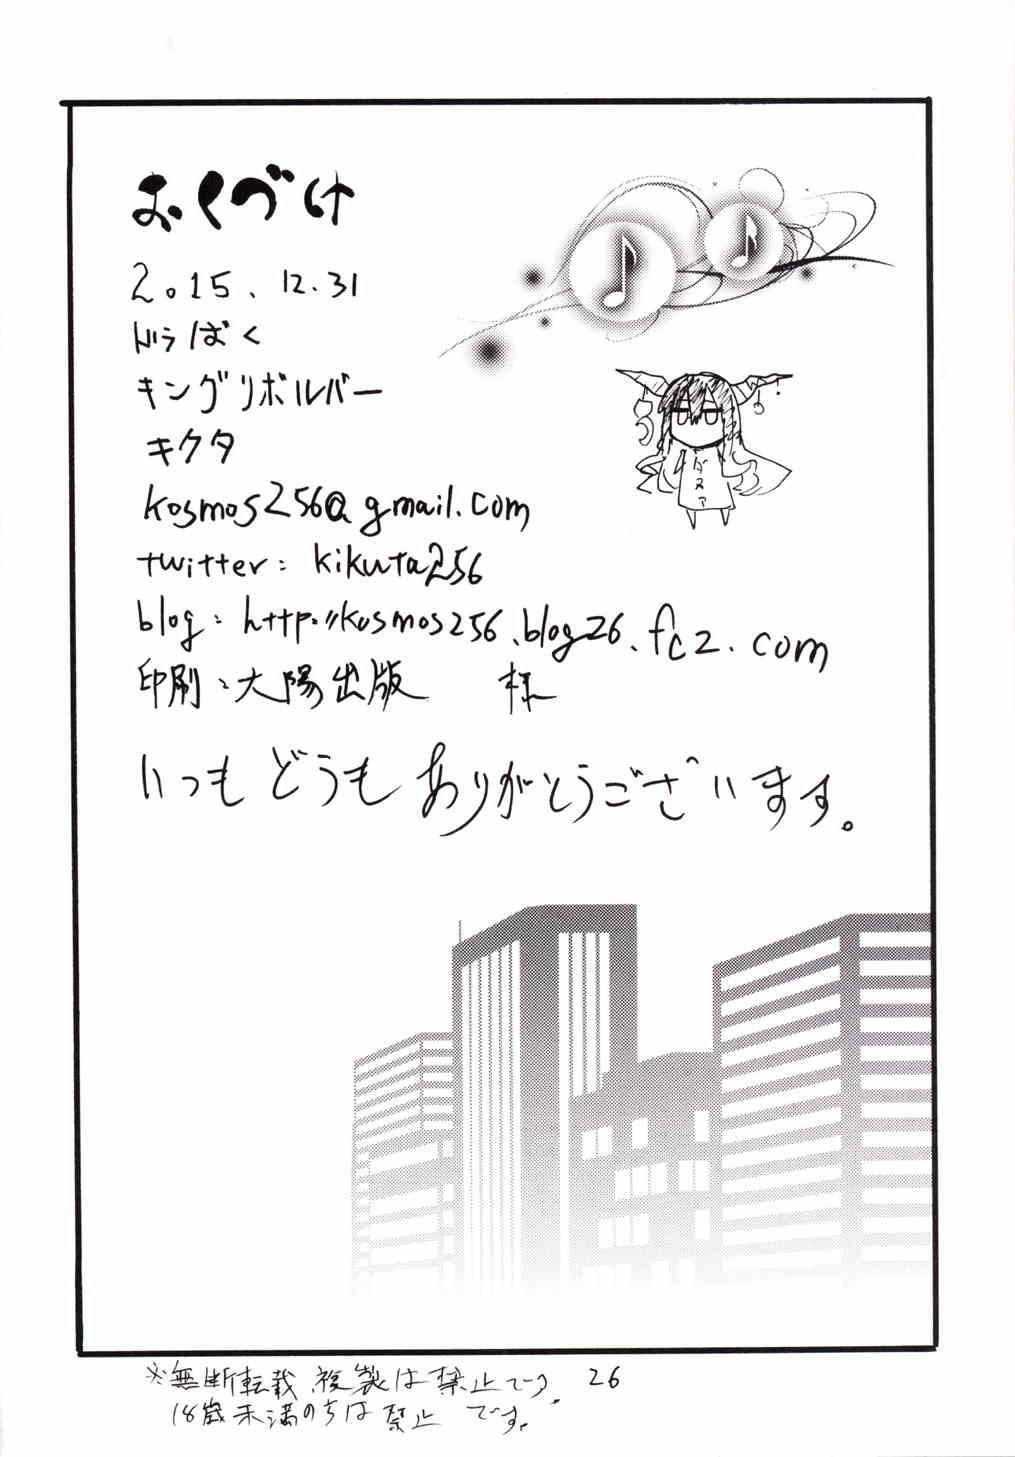 おくづけ
2015.12.31
ドラばく
キングリボルバー
キクタ
kosmos256@gmail.com
twitter: kikuta256
blog: http://kosmos256.blog26.fc2.com
印刷:大陽出版 様
いつもどうもありがとうございます。
※無断転載、複製は禁止です 26
18歳未満の方は禁止です。